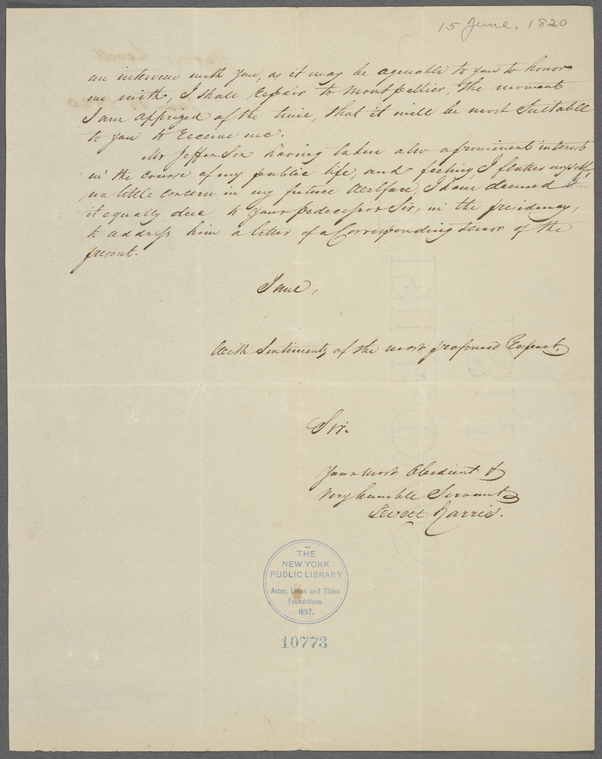 15 June. 1820
an interview with you, as it may be agreeable to you to honor
me with, I shall repair to Montpellier, the moment
I am apprized of the time, that it will be most suitable
to you to receive me.
Mr Jefferson having taken also a prominent interest
in the course of my public life, and feeling, I flatter myself,
no little concern in my future welfare, I have deemed
it equally due to your predecessor Sir, in the presidency,
to address him a letter of a corresponding tenor of the
present.
I am,
With Sentiments of the most profound Respect.
Sir.
Your most Obedient &
Very humble Servant
Levett Harris.
THE
NEW YORK
PUBLIC LIBRARY
Astor, Lenox and Tilden
Foundations.
1897.
10773